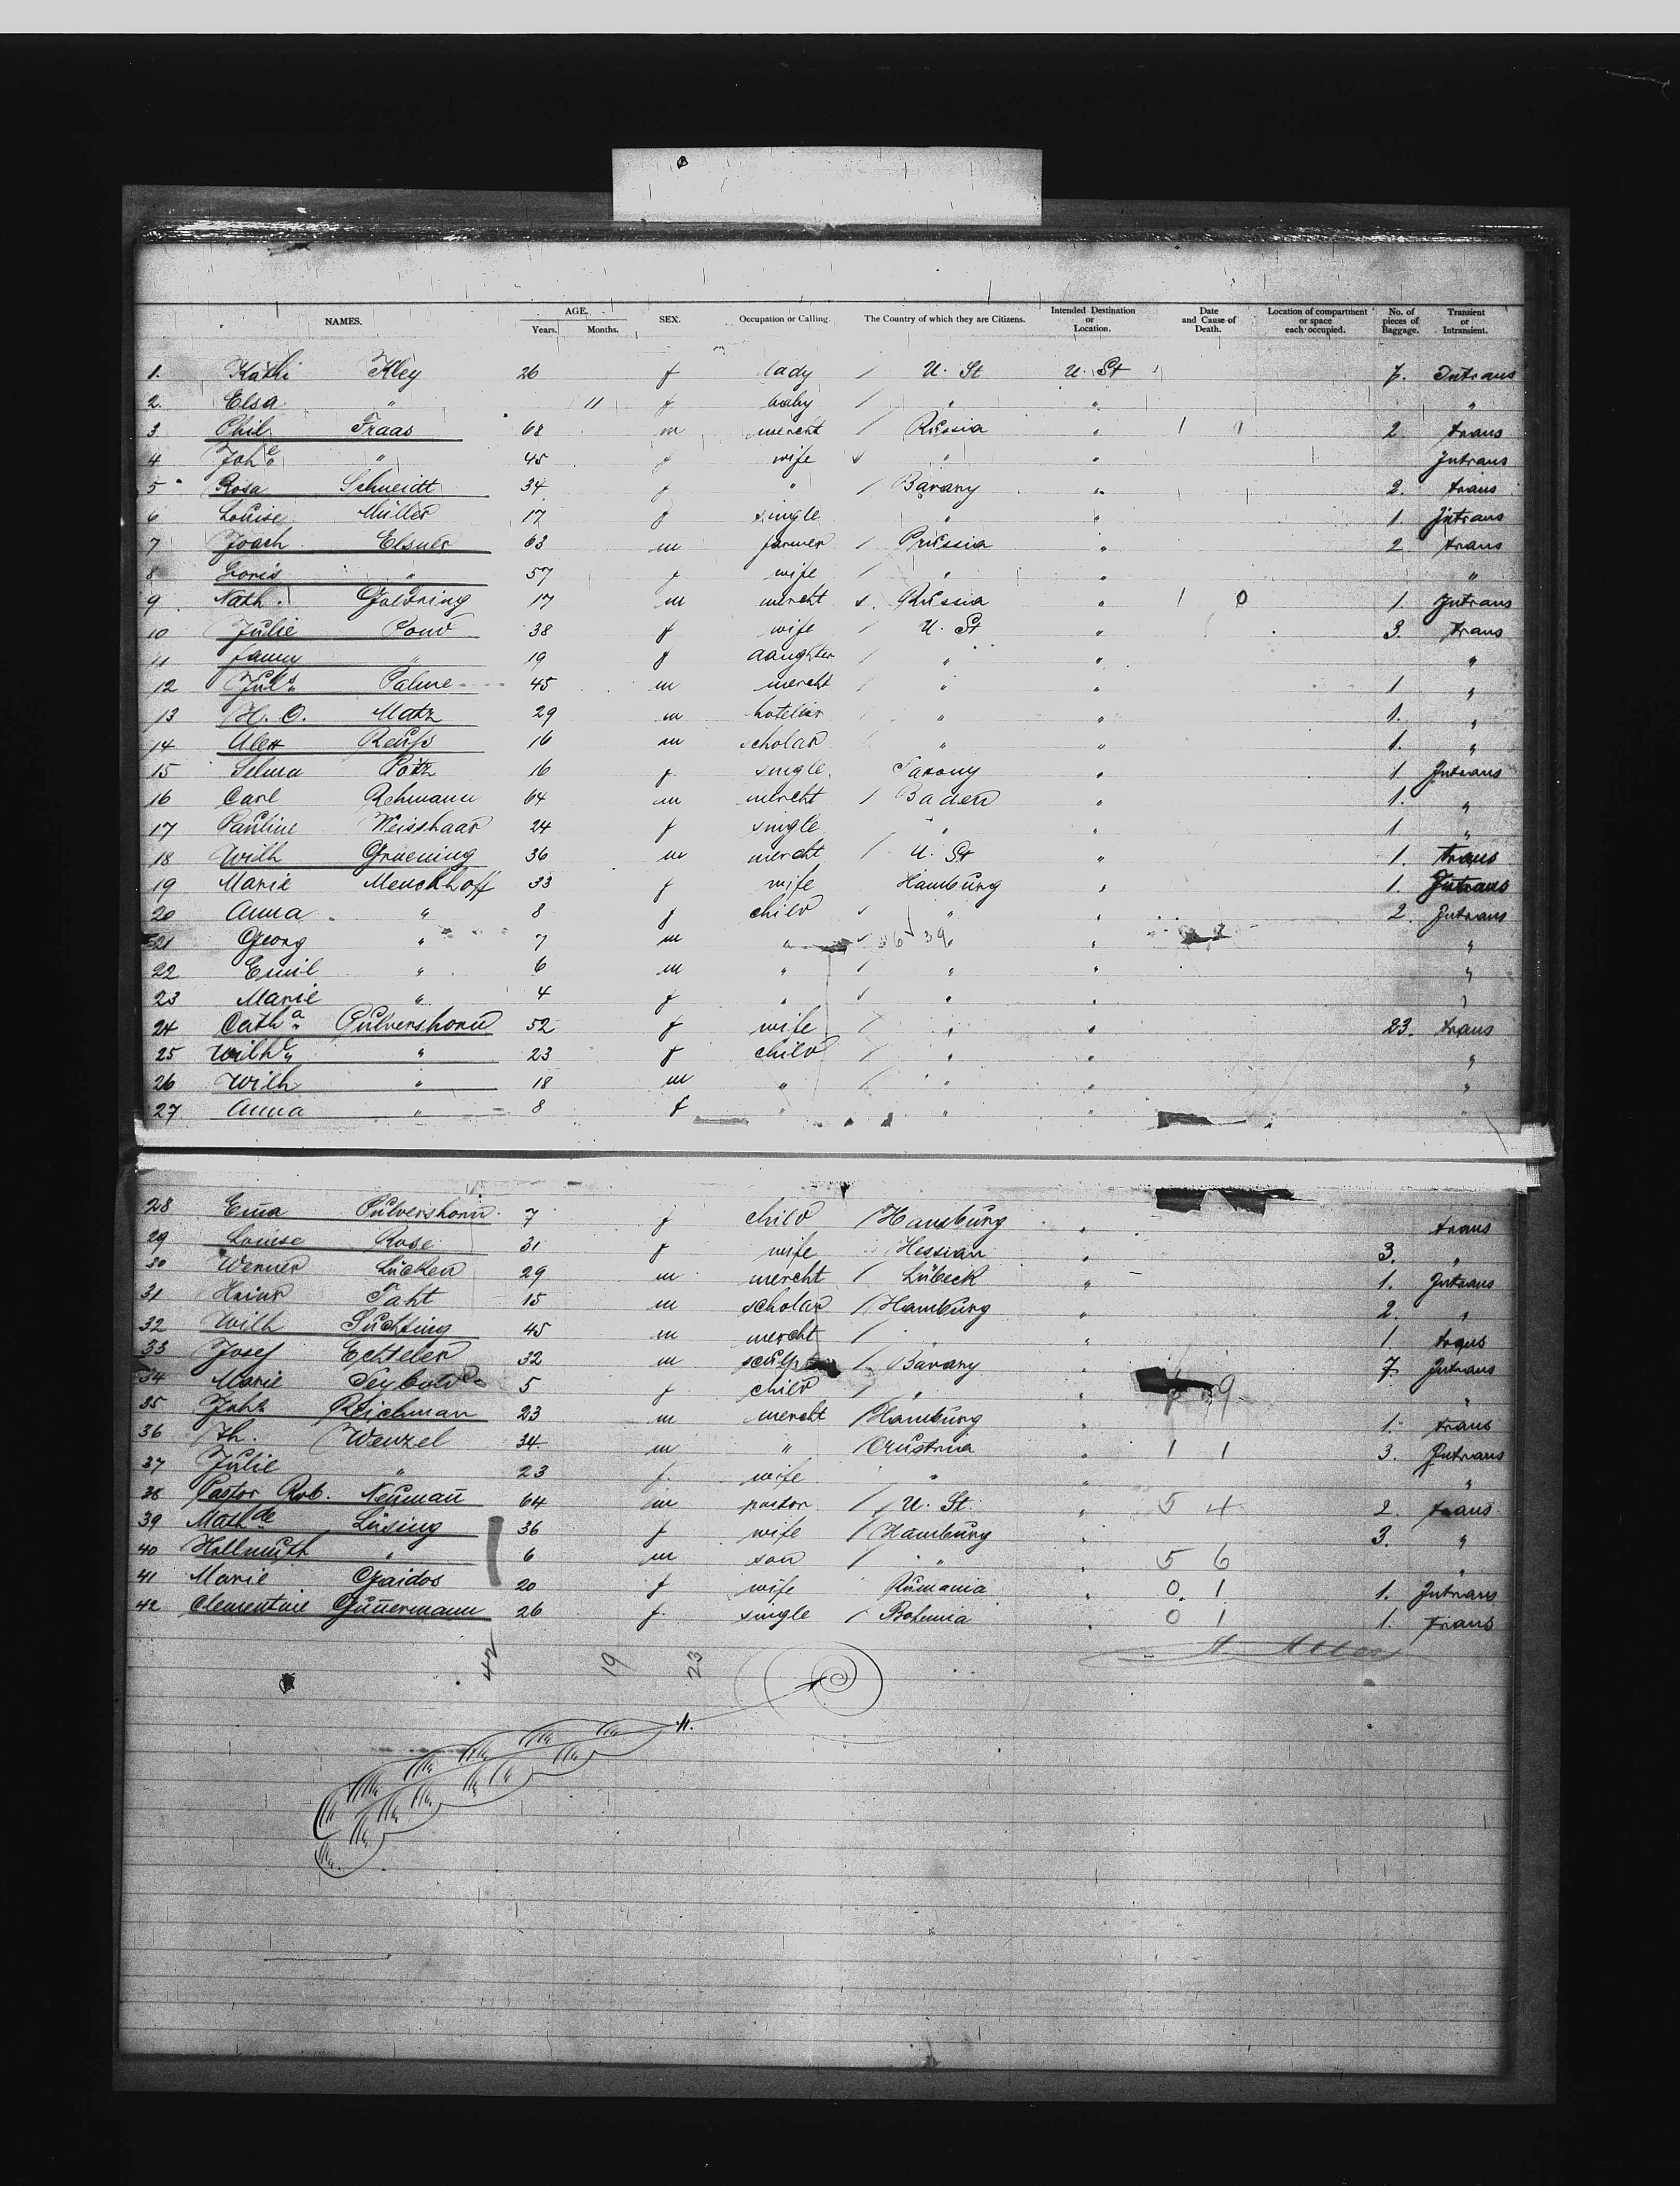 NAMES. AGE. Years. Months. SEX. Occupation or Calling. The Country of which they are Citizens. Intended Destination or Location. Date and Cause of Death. Location of compartment or space each occupied. No. of pieces of Baggage. Transient or Intransient.
1. Käthi Kley 26 f lady / U. St U. St 7. Intrans
2. Elsa " 11 f baby / " " "
3 Phil Fraas 68 m mercht / Russia " 1 2 trans
4 Joh.e " 45 f wife " " Intrans
5 Rosa Schneidt 34 f " / Bavary " 2. trans
6 Louise Müller 17 f single " " 1. Intrans
7 Joach Elsner 63 m farmer / Prussia " 2 trans
8 Doris " 57 f wife / " " "
9 Nath. Goldring 17 m mercht Russia " 1 0 1. Intrans
10 Julie Pond 38 f wife / U. St " 3. trans
11 Fanny " 19 f daughter / " " "
12 Juls Palme 45 m mercht / " " 1 "
13 H. O. Matz 29 m hotelier " " 1. "
14 Alex Reuss 16 m scholar " " 1. "
15 Selma Pötz 16 f. single. Saxony " 1. Intrans
16 Carl Rehmann 64 m mercht / Baden " 1. "
17 Pauline Weisshaar 24 f single " " 1. "
18 Wilh Gruening 36 m mercht / U. St " 1. trans
19 Marie Menckhoff 33 f wife Hamburg " 1. Intrans
20 Anna " 8 f child " " 2. Intrans
21 Georg " 7 m " " " "
22 Emil " 6 m " / " " "
23 Marie " 4 f " " " "
24 Cath.a Pulvershorn 52 f wife / " " 23. trans
25 Wilh.e " 23 f child / " " "
26 Wilh " 18 m " / " " "
27 Anna " 8 f " " " "
28 Em̄a Pulvershorn 7 f child / Hamburg " trans
29 Louise Rose 31 f wife Hessian " 3. "
30 Werner Lücken 29 m mercht / Lübeck " 1. Intrans
31 Heinr Saht 15 m scholar / Hamburg " 2. "
32 Wilh Suchting 45 m mercht / " " 1 trans
33 Josef Echteler 32 m sculp / Bavary " 7 Intrans
34 Marie Seybold 5 f child / " " 9 "
35 Johs Reichman 23 m mercht / Hamburg " 1. trans
36 Th. Wenzel 34 m " / Austria " 1 1 3. Intrans
37 Julie " 23 f. wife " " "
38 Pastor Rob. Neuman̄ 64 m pastor / U. St. " 5 4 2. trans
39 Mathde Lüsing 36 f wife / Hamburg " 3. "
40 Hellmuth " 6 m son / " 5 6 "
41 Marie Gaidos 20 f wife Rumania " 0 1 1. Intrans
42 Clementine Gun̄ermann 26 f. single / Bohemia " 0 1 1. trans
42 19 23